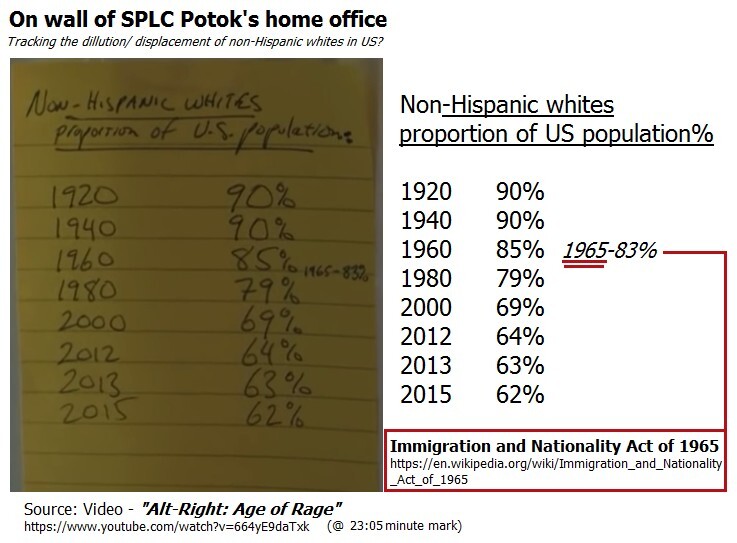 On wall of SPLC Potok's home office
Tracking the dillution/ displacement of non-Hispanic whites in US?
NON-HISPANIC WHITES
proportion of U.S. population:
1920 90%
1940 90%
1960 85% 1965-83%
1980 79%
2000 69%
2012 64%
2013 63%
2015 62%
Non-Hispanic whites
proportion of US population%
1920 90%
1940 90%
1960 85% 1965-83%
1980 79%
2000 69%
2012 64%
2013 63%
2015 62%
Immigration and Nationality Act of 1965
https://en.wikipedia.org/wiki/Immigration_and_Nationality
_Act_of_1965
Source: Video - "Alt-Right: Age of Rage"
https://www.youtube.com/watch?v=664yE9daTxk (@ 23:05 minute mark)